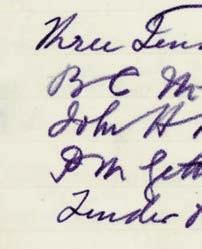 Three Ten
B C M
John H
P M Gett
Tender